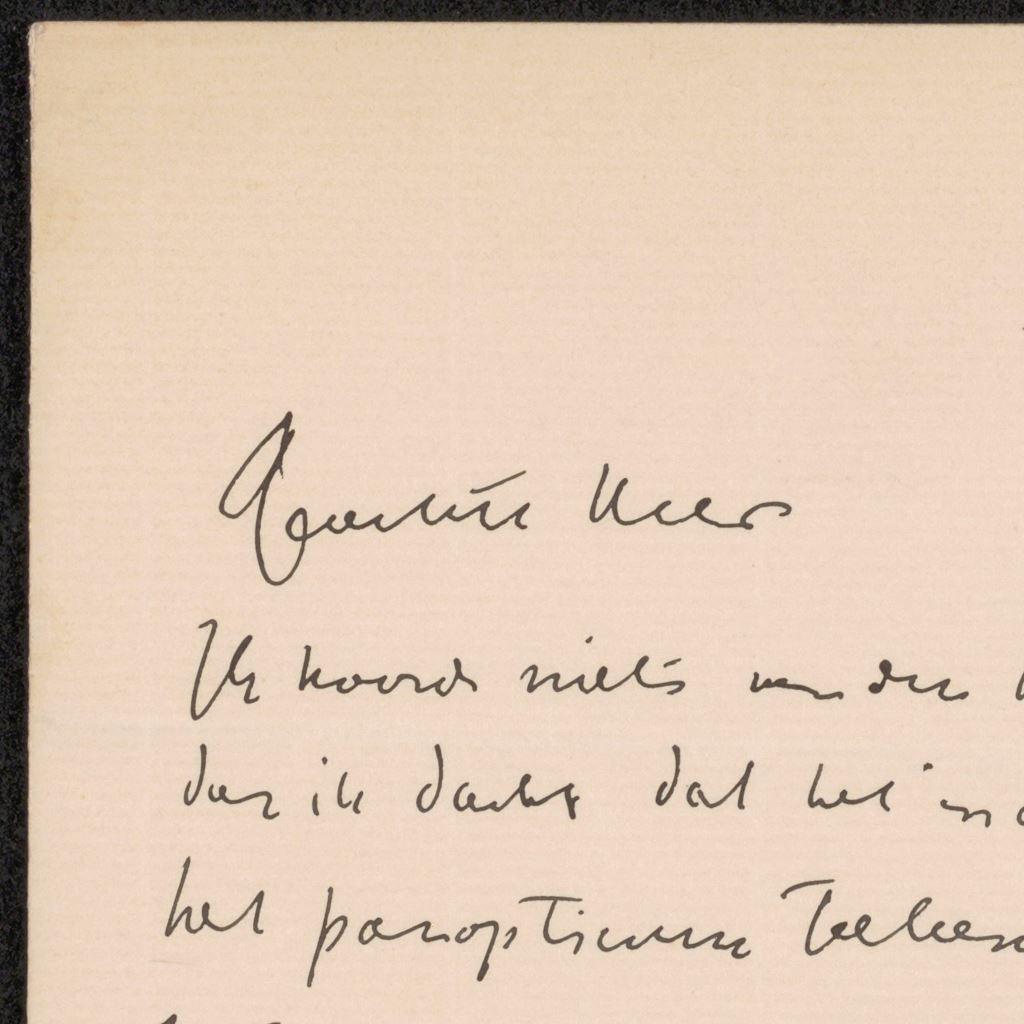 Geachte Heer
Ik hoorde niets van den
dus ik dacht dat het in
het panopticum